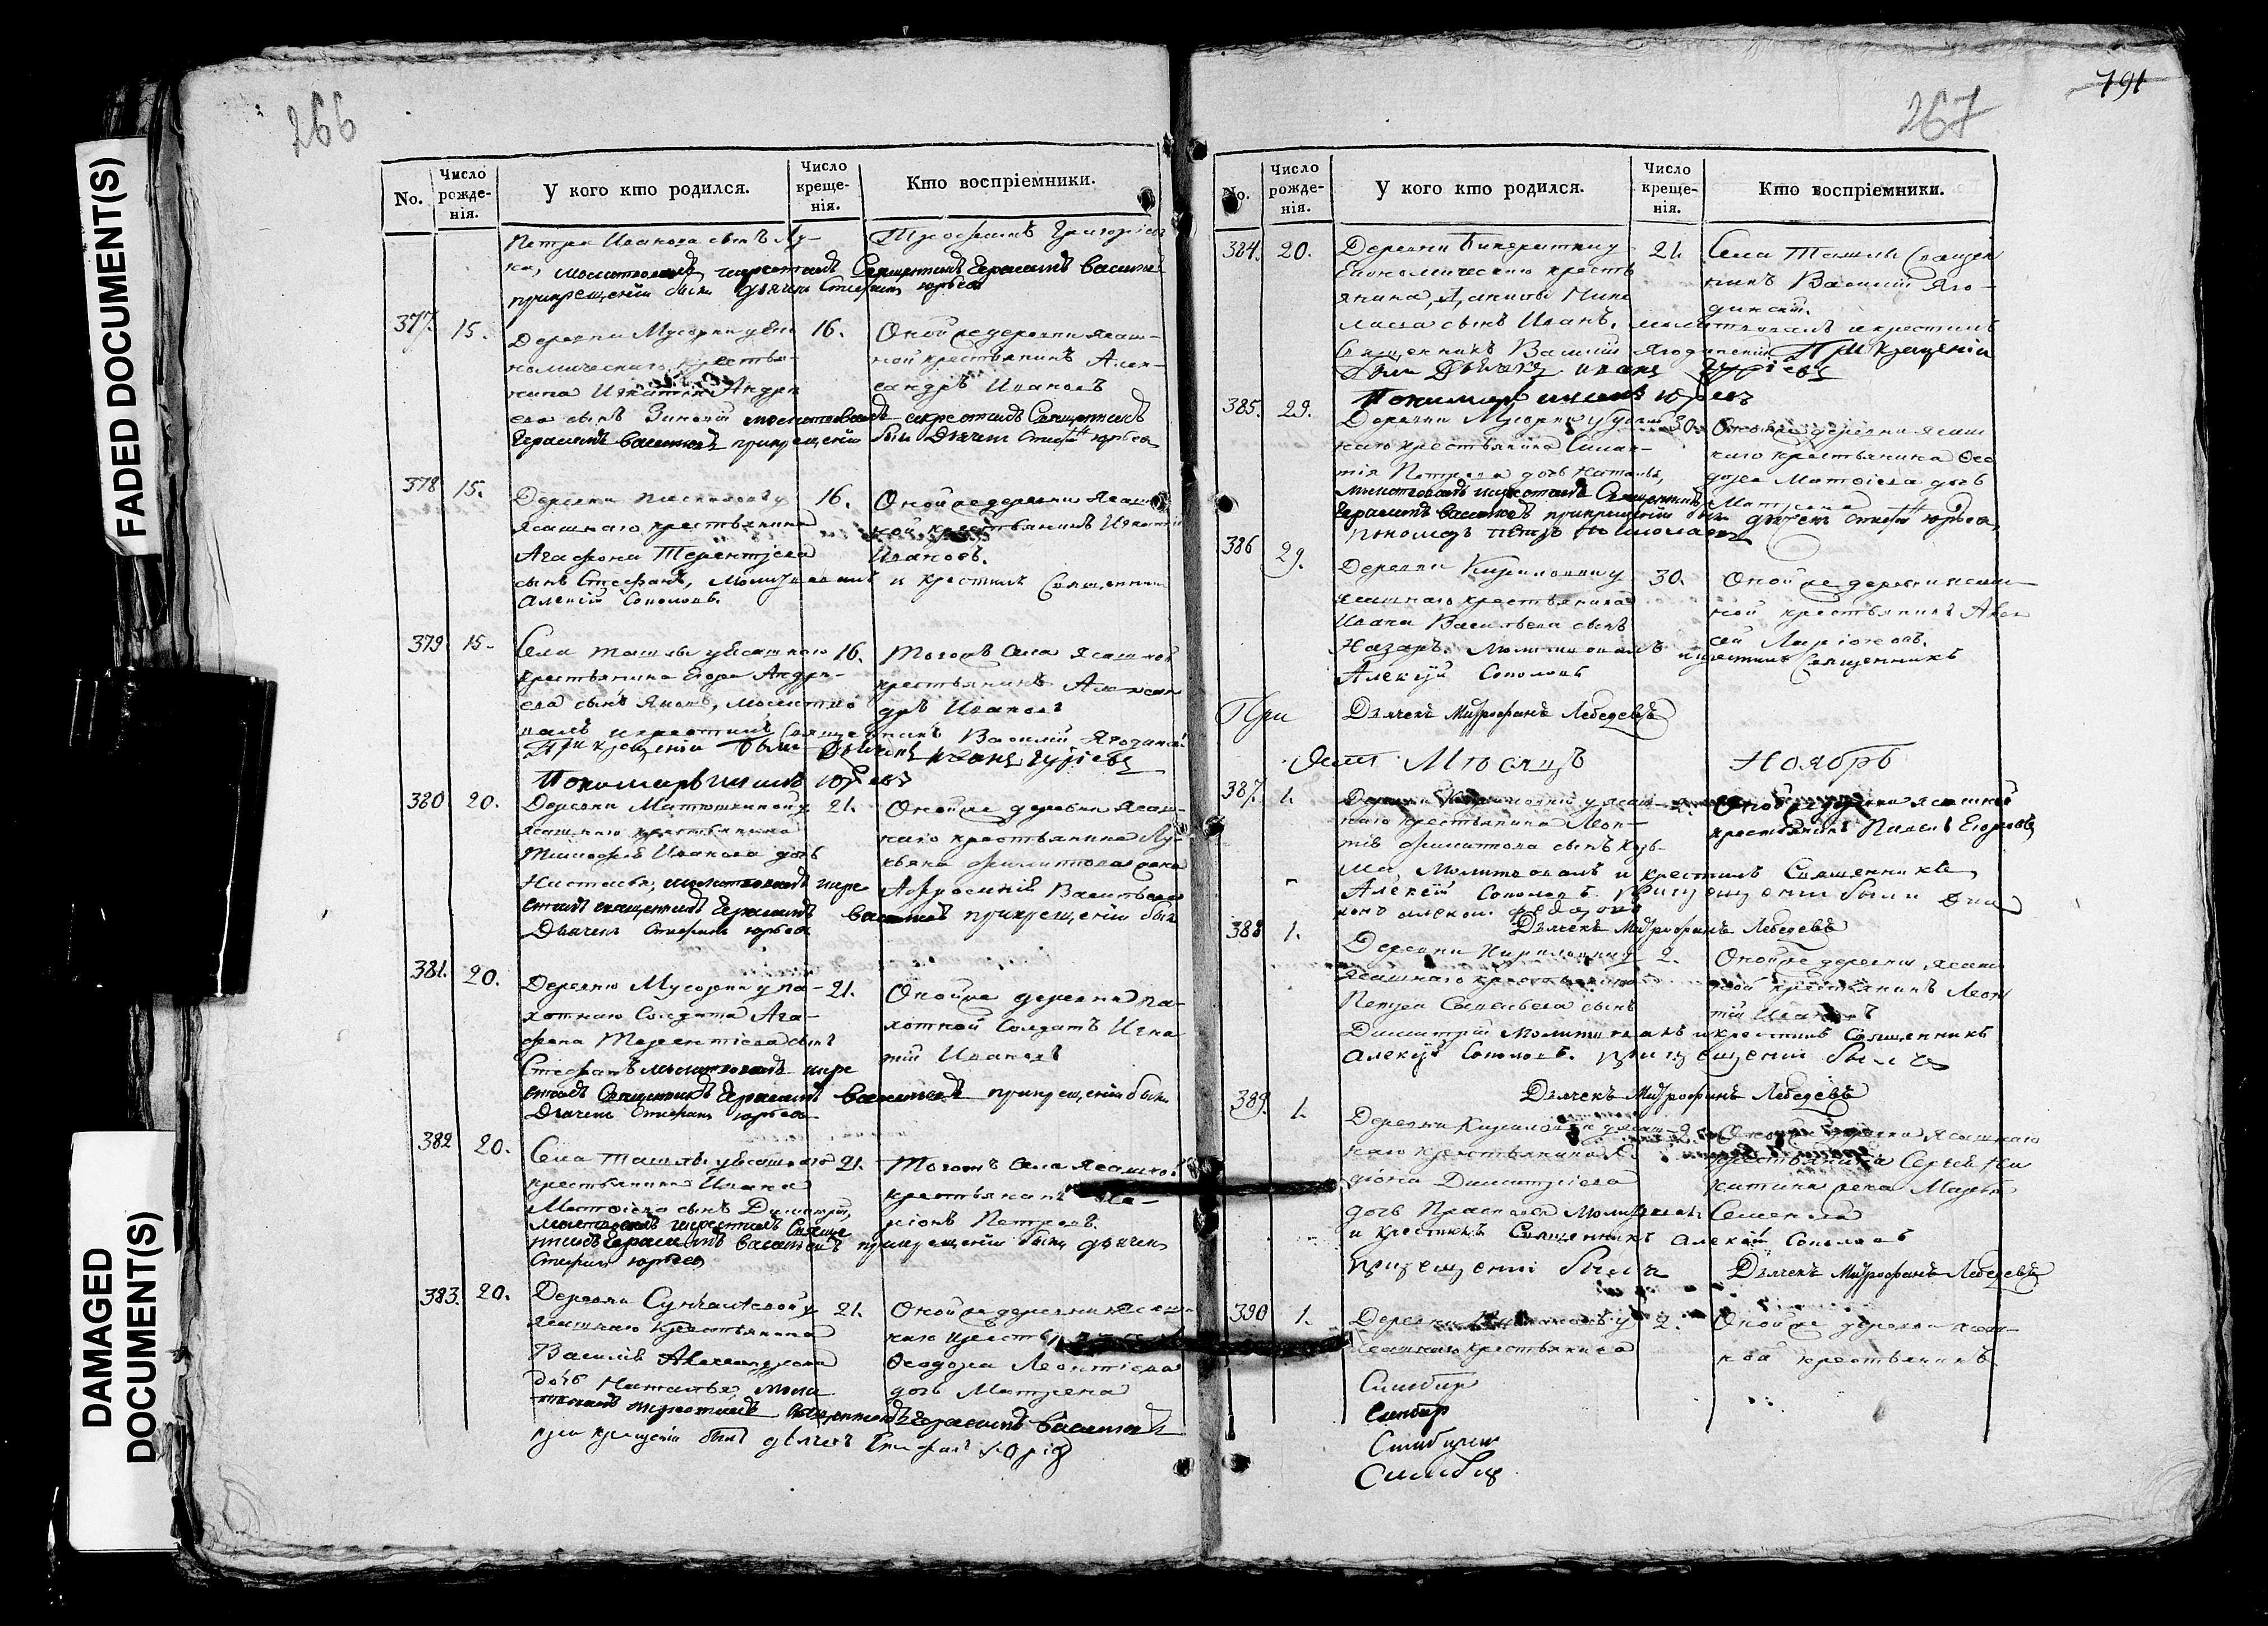 FADED DOCUMENT(S)
DAMAGED
DOCUMENT(S)
266
No.
Число рожде- нія.
У кого кто родился.
Число креще- нія.
Кто воспріемники.
Петра Иванова сынъ Лу-
ка, молитвовалъ и крестилъ Священникъ Герасимъ Васильевъ
при крещеніи былъ дьячекъ Стефанъ Юрьевъ
Григорьевъ
377. 15.
Деревни Мусорки у Эко-
номическаго крестья-
нина Игнатія Андре
ева сынъ Зиновій молитвовалъ и крестилъ Священникъ
Герасимъ Васильевъ при крещеніи былъ Дьячекъ Стефанъ Юрьевъ
16.
Оной же деревни ясаш-
ной крестьянинъ Алек-
сандръ Ивановъ
378 15.
Деревни
ясашнаго крестьянина
Агафона Терентьева
сынъ Стефанъ, Молитвовалъ и крестилъ Священникъ
Алексій Соколовъ.
16.
Оной же деревни ясаш
ной крестьянинъ Игнатій
Ивановъ.
379 15.
Села Ташлы у Ясашнаго
крестьянина Егора Андре-
ева сынъ Яковъ, молитво
валъ и крестилъ Священникъ Василій Ягодинскій
При крещеніи были Дьячекъ Иванъ Гурьевъ
Пономарь
16.
Тогожъ Села Ясашной
крестьянинъ Алексан
дръ Ивановъ
380 20.
Деревни Матюшкиной у
ясашнаго крестьянина
Тимофея Иванова дочь
Настасья, молитвовалъ и кре
стилъ священникъ Герасимъ Васильевъ при крещеніи былъ
Дьячекъ Стефанъ Юрьевъ
21.
Оной же деревни Ясаш-
наго крестьянина Лу-
кьяна Филиппова жена
Афросинья Васильева
381. 20.
Деревни Мусорки у па-
хотнаго Солдата Ага-
фона Терентіева сынъ
Стефанъ молитвовалъ и кре
стилъ Священникъ Герасимъ Васильевъ при крещеніи былъ
Дьячекъ Стефанъ Юрьевъ
21.
Оной же деревни Па-
хотной Солдатъ Игна
тій Ивановъ
382 20.
Села Ташлы у Ясашнаго
крестьянина Ивана
Матвіева сынъ Димитрій,
молитвовалъ и крестилъ Священ
никъ Герасимъ Васильевъ при крещеніи былъ дьячекъ
Стефанъ Юрьевъ
21.
Тогожъ Села Ясашной
крестьянинъ
Петровъ.
383. 20.
Деревни Сункалеевой у
ясашнаго крестьянина
Василія Александрова
дочь Наталья, моли
твовалъ и крестилъ Священникъ Герасимъ Васильевъ
при крещеніи былъ дьячекъ Стефанъ
21.
Оной же деревни ясаш
наго крестьянина
Ѳеодора Леонтіева
дочь Матрена
791
267
No.
Число рожде- нія.
У кого кто родился.
Число креще- нія.
Кто воспріемники.
384. 20.
Деревни
Економическаго кресть
янина, Данилы Нико
лаева сынъ Иванъ, молитвовалъ и крестилъ
Священникъ Василій Ягодинскій При крещеніи
были Дьячекъ Иванъ Гурьевъ
Пономарь
21.
Села Ташлы Священ
никъ Василій Яго-
динскій.
385. 29.
Деревни Мусорки у ясаш
наго крестьянина
Петрова дочь Наталья,
молитвовалъ и крестилъ Священникъ
Герасимъ Васильевъ при крещеніи былъ дьячекъ Стефанъ Юрьевъ
пономарь Петръ Николаевъ
30.
Оной же деревни ясаш
наго крестьянина Ѳео
дора Матвіева дочь
Матрена
386 29.
Деревни Кириловки у
ясашнаго крестьянина
Ивана Васильева сынъ
Назаръ. Молитвовалъ и крестилъ Священникъ
Алексій Соколовъ
30.
Оной же деревни ясаш
ной крестьянинъ Алек
сей Ларіоновъ.
При Дьячекъ Митрофанъ Лебедевъ
Мѣсяцъ Ноябрь
387. 1.
Деревни Кириловки у ясаш-
наго крестьянина Леон-
тія Филиппова сынъ Козь-
ма, Молитвовалъ и крестилъ Священникъ
Алексій Соколовъ. при крещеніи были Дья
Дьячекъ Митрофанъ Лебедевъ
2.
Оной же деревни ясашной
крестьянинъ Павелъ Егоровъ
388 1.
Деревни Кириловки у
ясашнаго крестьянина
Петра Савельева сынъ
Димитрій Молитвовалъ и крестилъ Священникъ
Алексій Соколовъ. при крещеніи былъ
Дьячекъ Митрофанъ Лебедевъ
2.
Оной же деревни ясаш
ной крестьянинъ Леон
тій Ивановъ
389. 1.
Деревни Кириловки у ясаш-
наго крестьянина
Димитріева
дочь Прасковья Молитвовалъ
и крестилъ Священникъ Алексій Соколовъ
при крещеніи былъ Дьячекъ Митрофанъ Лебедевъ
2.
Оной же деревни Ясашнаго
крестьянина Сергѣя Ни
китина жена Марья
Семенова
390 1.
Деревни Кириловки у
ясашнаго крестьянина
2.
Оной же деревни ясаш-
ной крестьянинъ
Симбир
Симбир
Симбирск
Симбир